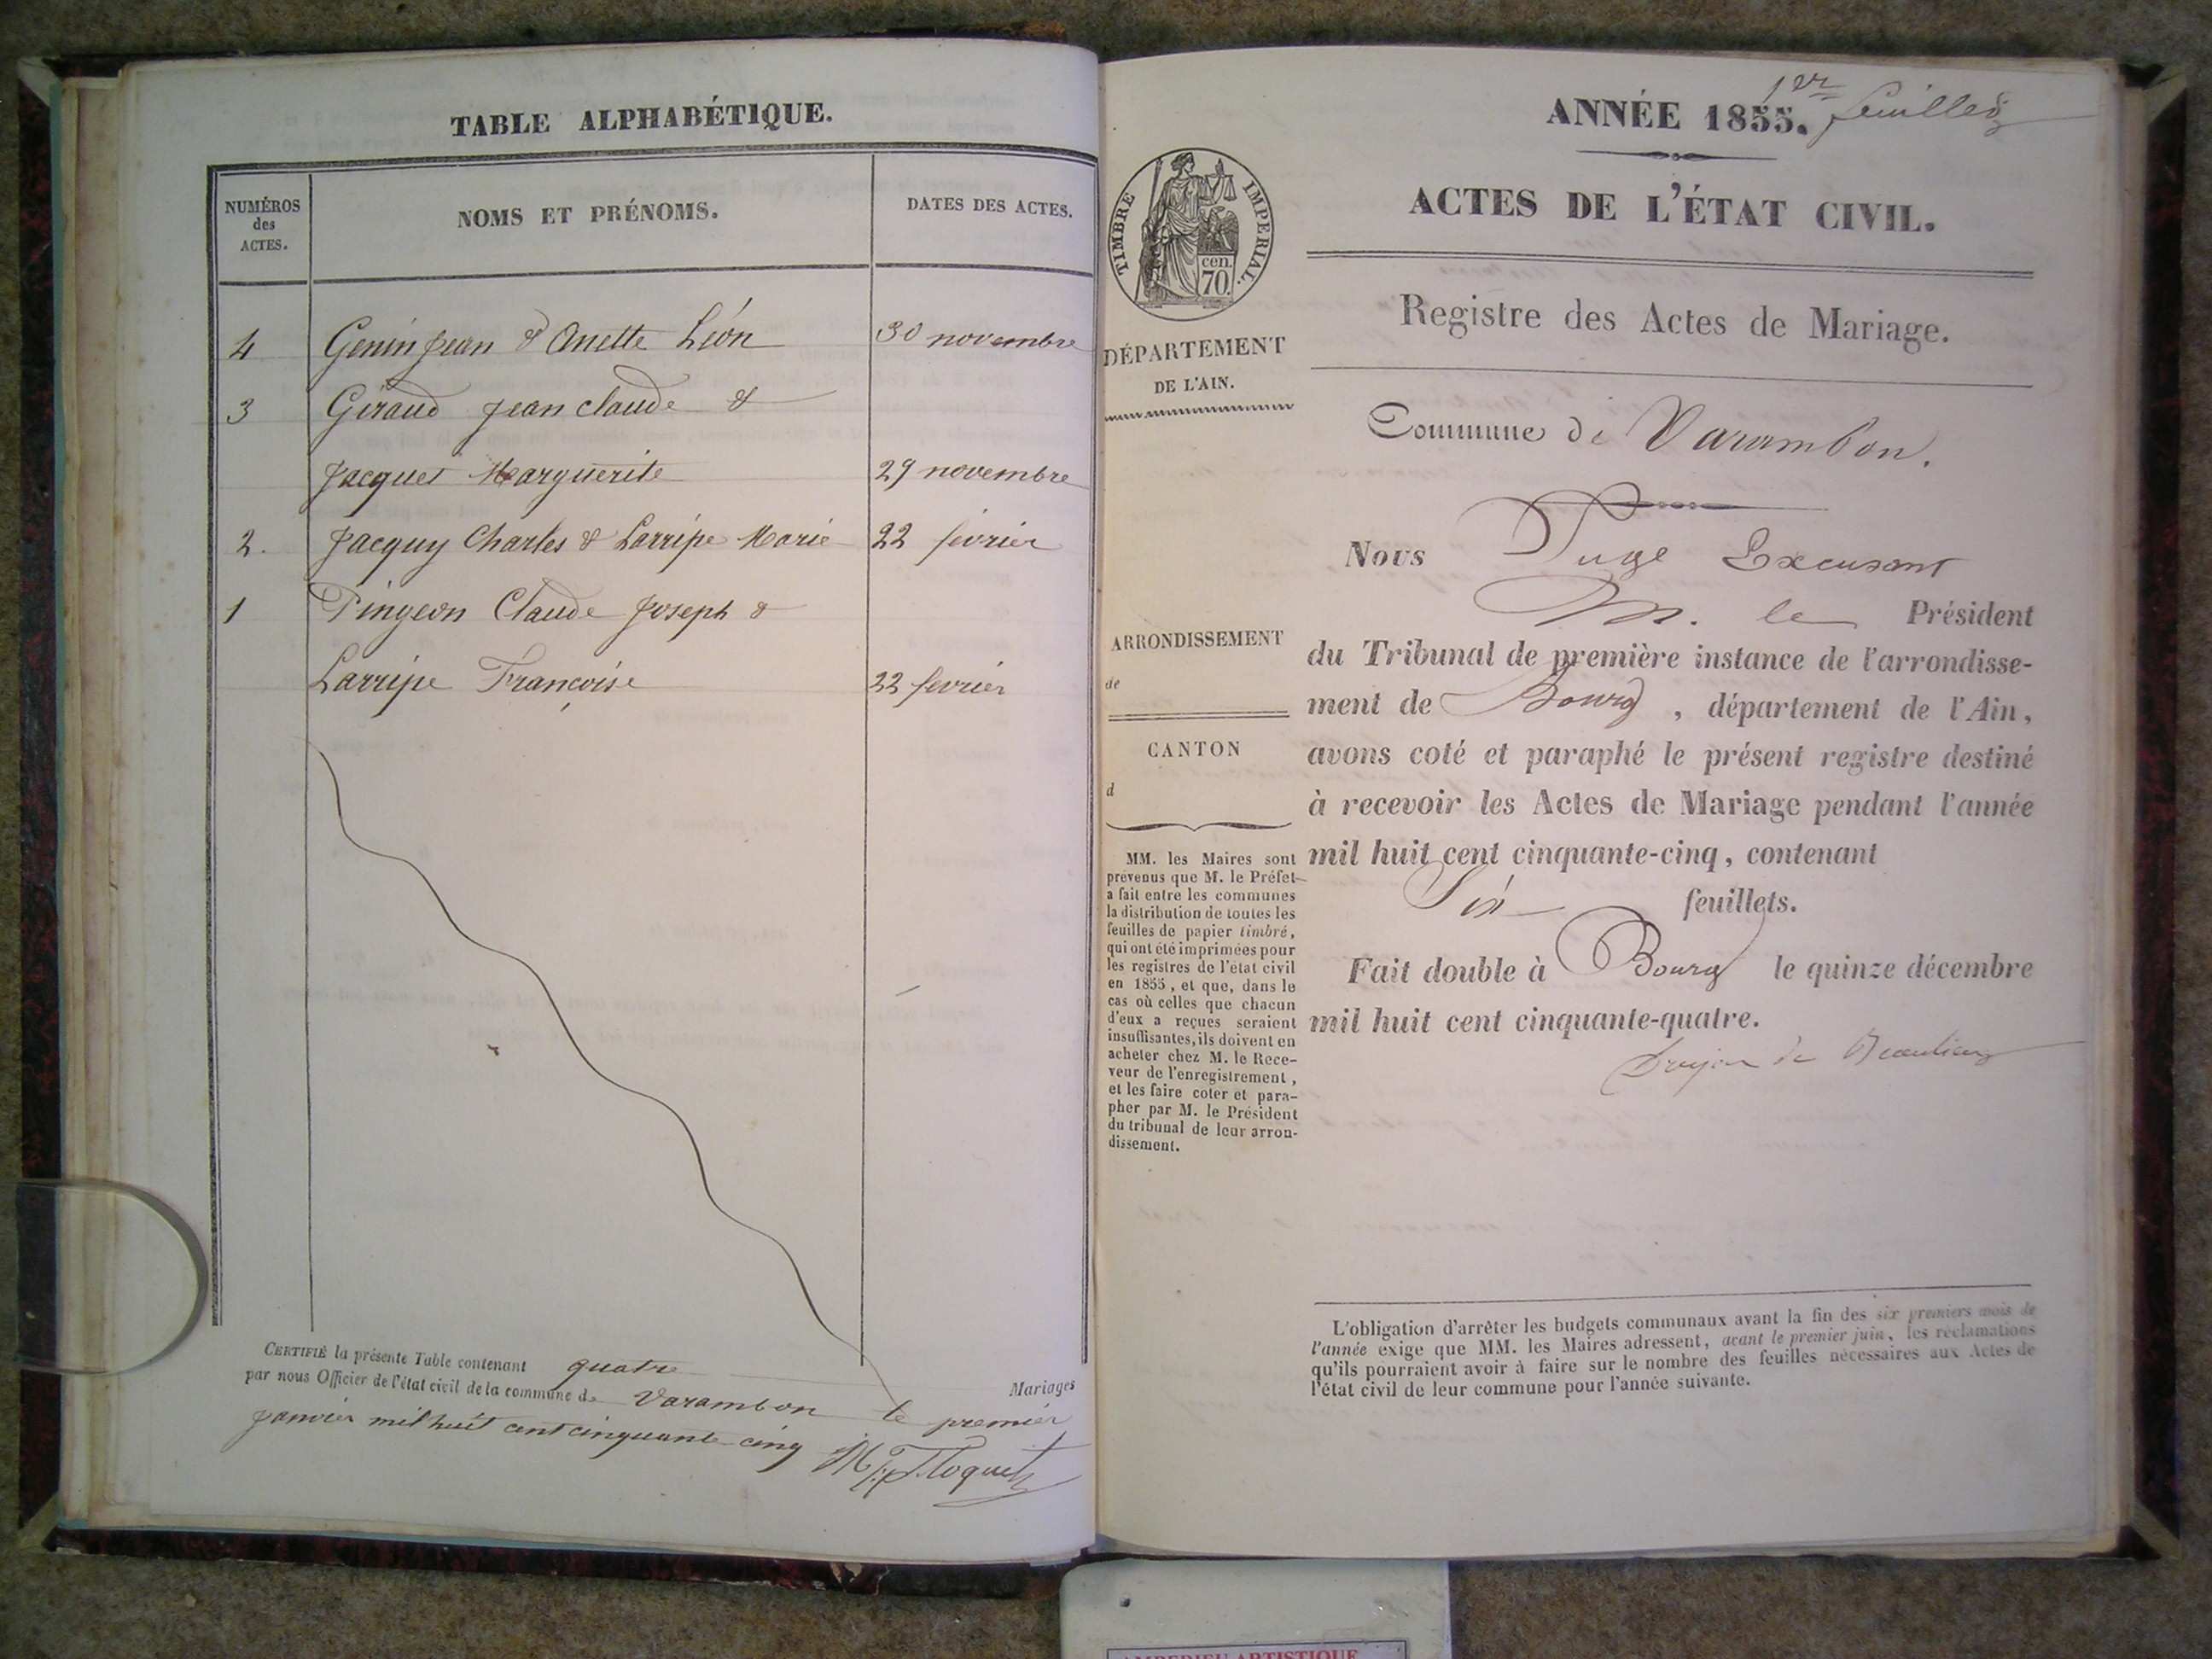 TABLE ALPHABÉTIQUE.
NUMÉROS
des
ACTES.
NOMS ET PRÉNOMS.
DATES DES ACTES.
4 Genin Jean & Anette Léon 30 novembre
3 Giraud Jean claude &
Jacquet Marguerite 29 novembre
2. Jacquy Charles & Larripe Marie 22 février
1 Pingeon Claude Joseph &
Larripe Françoise 22 fevrier
CERTIFIÉ la présente Table contenant quatre Mariages
par nous Officier de l'état civil de la commune de Varambon le premier
janvier mil huit cent cinquante cinq
1er feuillet
ANNÉE 1855.
ACTES DE L'ÉTAT CIVIL.
TIMBRE IMPERIAL.
cen.
70.
Registre des Actes de Mariage.
DÉPARTEMENT
DE L'AIN.
Commune de Varambon.
Nous Juge Excusant
M. le Président
du Tribunal de première instance de l'arrondisse-
ment de Bourg, département de l'Ain,
avons coté et paraphé le présent registre destiné
à recevoir les Actes de Mariage pendant l'année
mil huit cent cinquante-cinq, contenant
Six feuillets.
Fait double à Bourg le quinze décembre
mil huit cent cinquante-quatre.
Drujon de Beaulieu
ARRONDISSEMENT
de
CANTON
d
MM. les Maires sont
prévenus que M. le Préfet
a fait entre les communes
la distribution de toutes les
feuilles de papier timbré,
qui ont été imprimées pour
les registres de l'état civil
en 1855, et que, dans le
cas où celles que chacun
d'eux a reçues seraient
insuffisantes, ils doivent en
acheter chez M. le Rece-
veur de l'enregistrement,
et les faire coter et para-
pher par M. le Président
du tribunal de leur arron-
dissement.
L'obligation d'arrêter les budgets communaux avant la fin des six premiers mois de
l'année exige que MM. les Maires adressent, avant le premier juin, les réclamations
qu'ils pourraient avoir à faire sur le nombre des feuilles nécessaires aux Actes de
l'état civil de leur commune pour l'année suivante.
AMBERIEU ARTISTIQUE